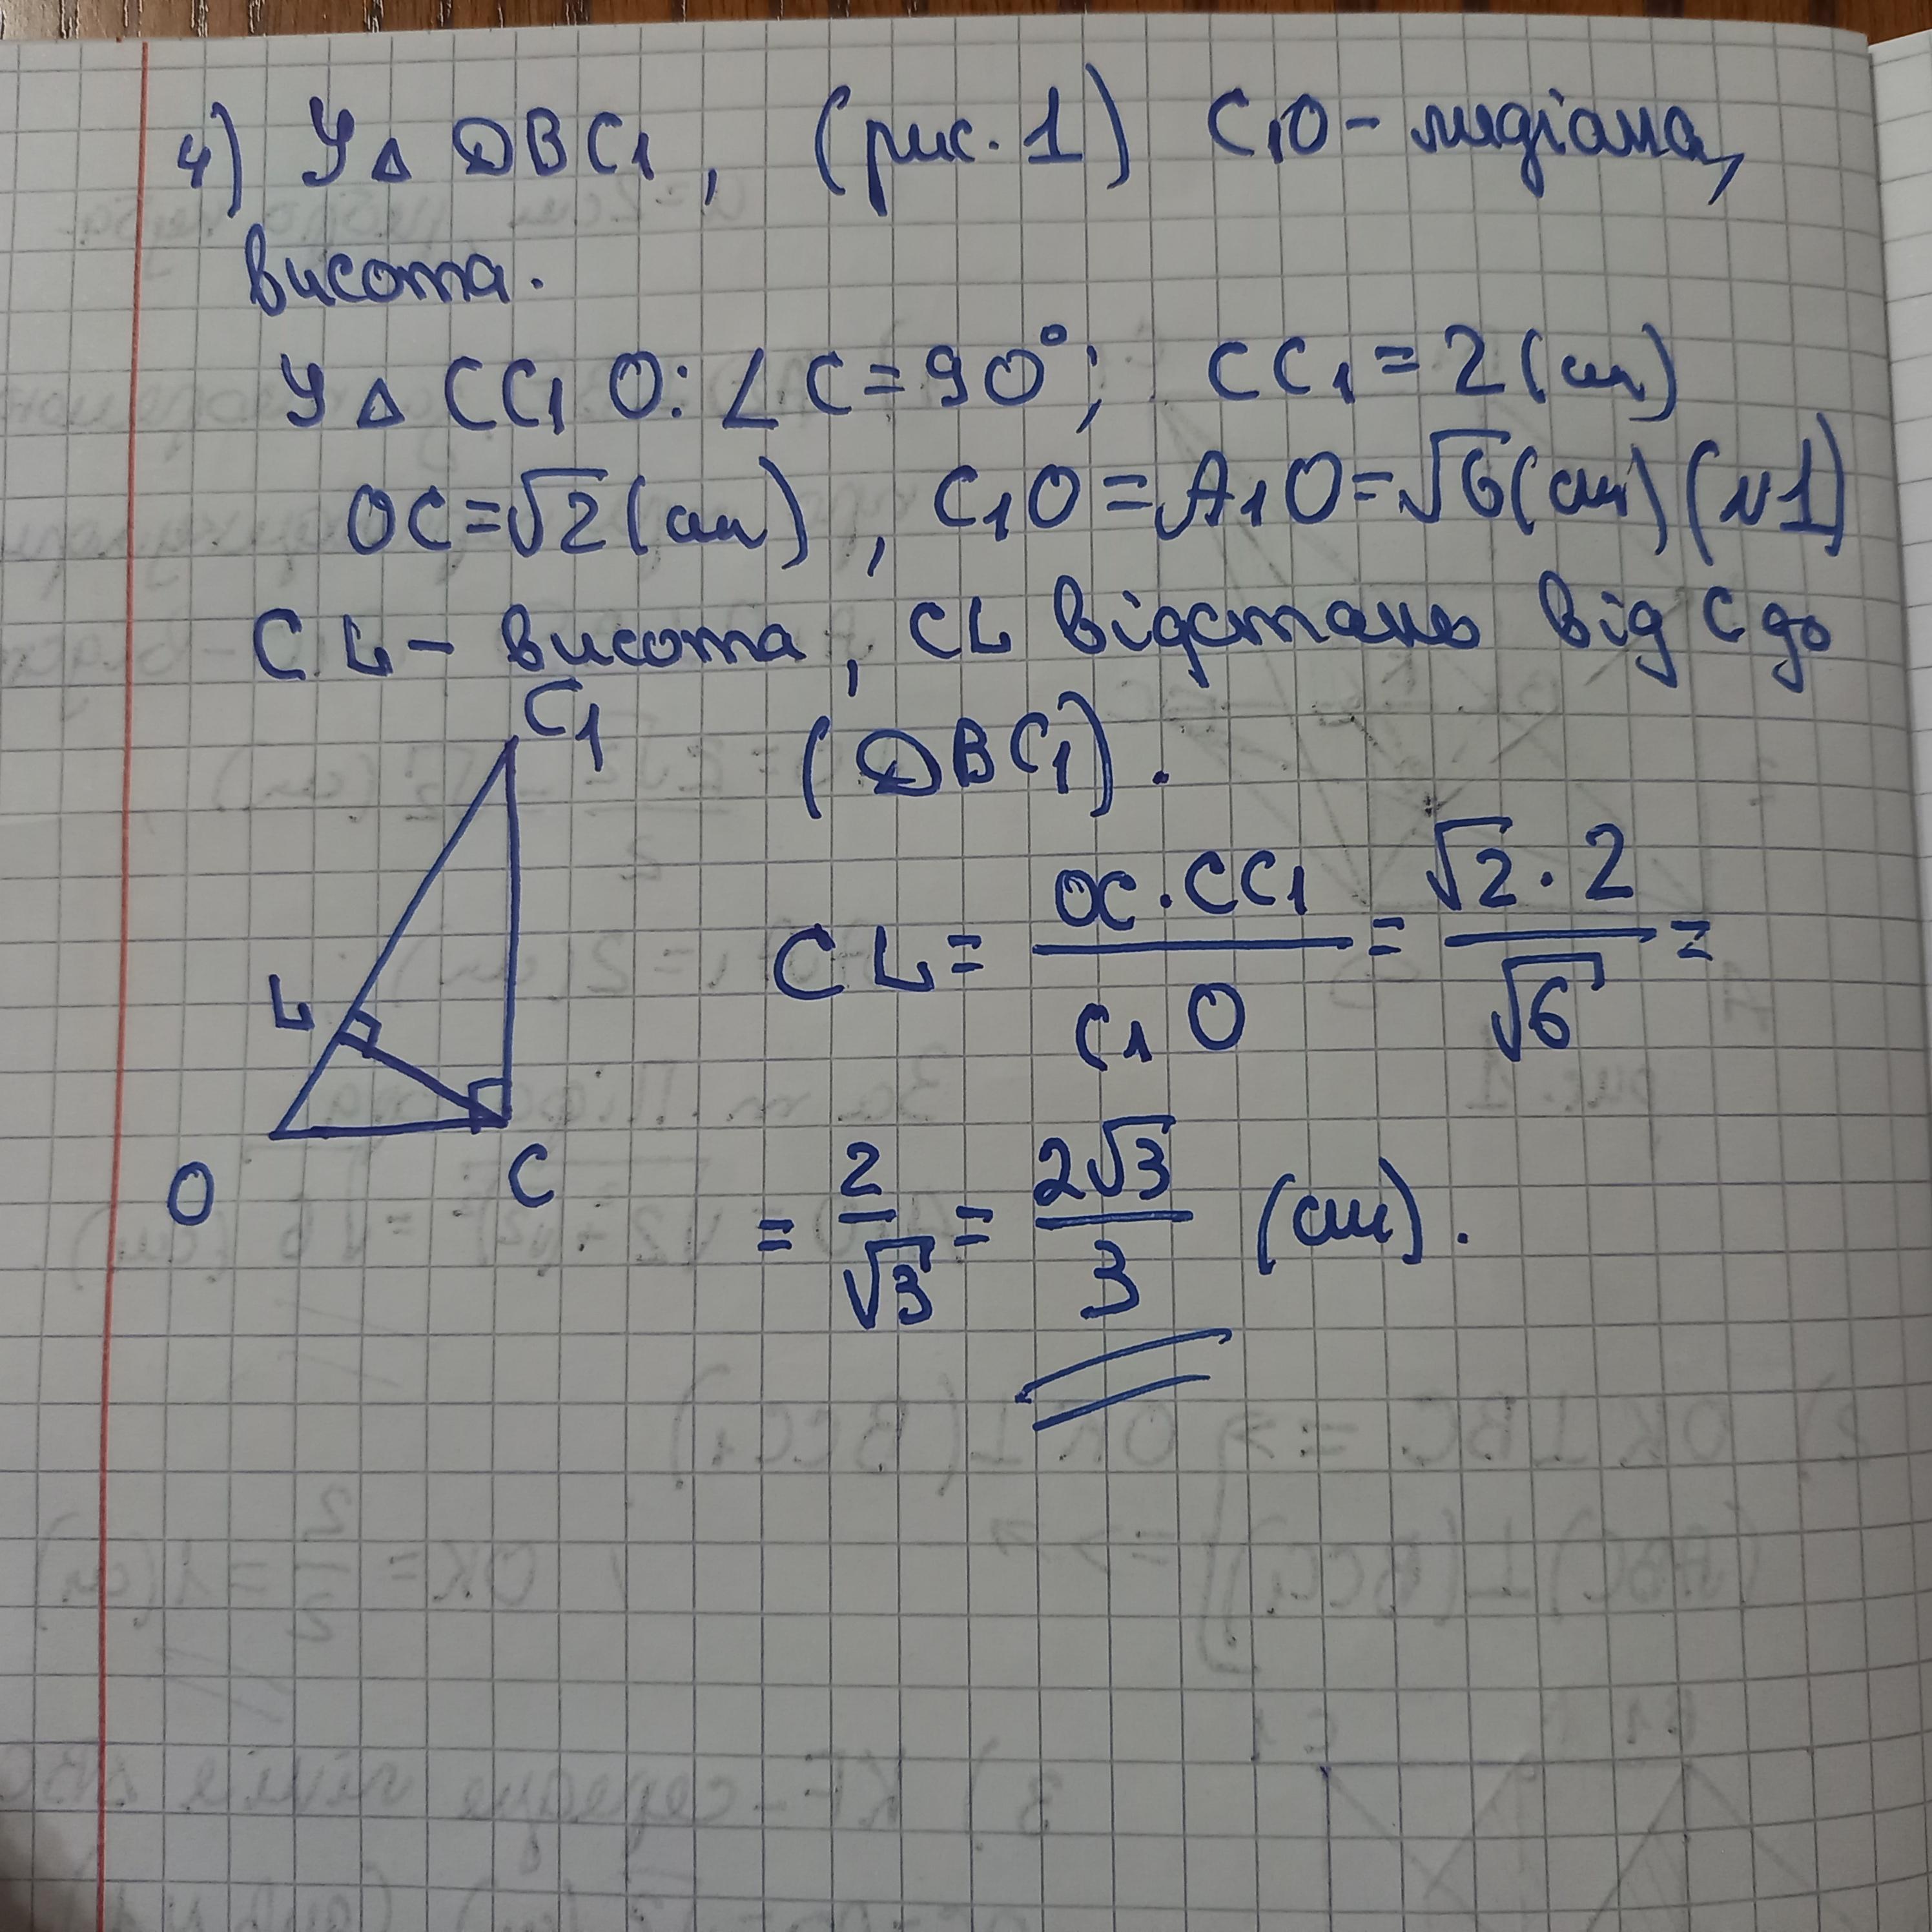 4) У△ DBC₁, (рис. 1) C₁O - медіана,
висота.
У△ CC₁O: ∠C = 90°; CC₁ = 2 (см)
OC = √2 (см), C₁O = A₁O = √6 (см) (N1)
CL - висота, CL відстань від C до
(DBC₁).
C₁
L
O
C
CL = OC · CC₁ / C₁O = √2 · 2 / √6 =
= 2/√3 = 2√3/3 (см).